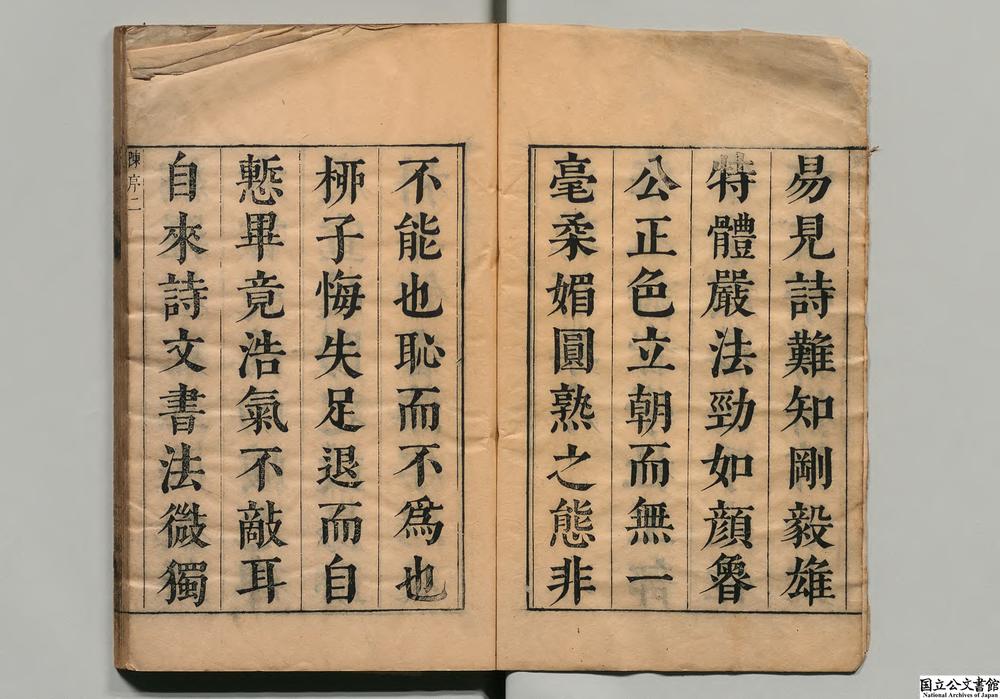 易見詩難知剛毅雄
特體嚴法勁如顔魯
公正色立朝而無一
毫柔媚圓熟之態非
不能也恥而不爲也
栁子悔失足退而自
慙畢竟浩氣不敵耳
自來詩文書法微獨
陳序二
国立公文書館
National Archives of Japan